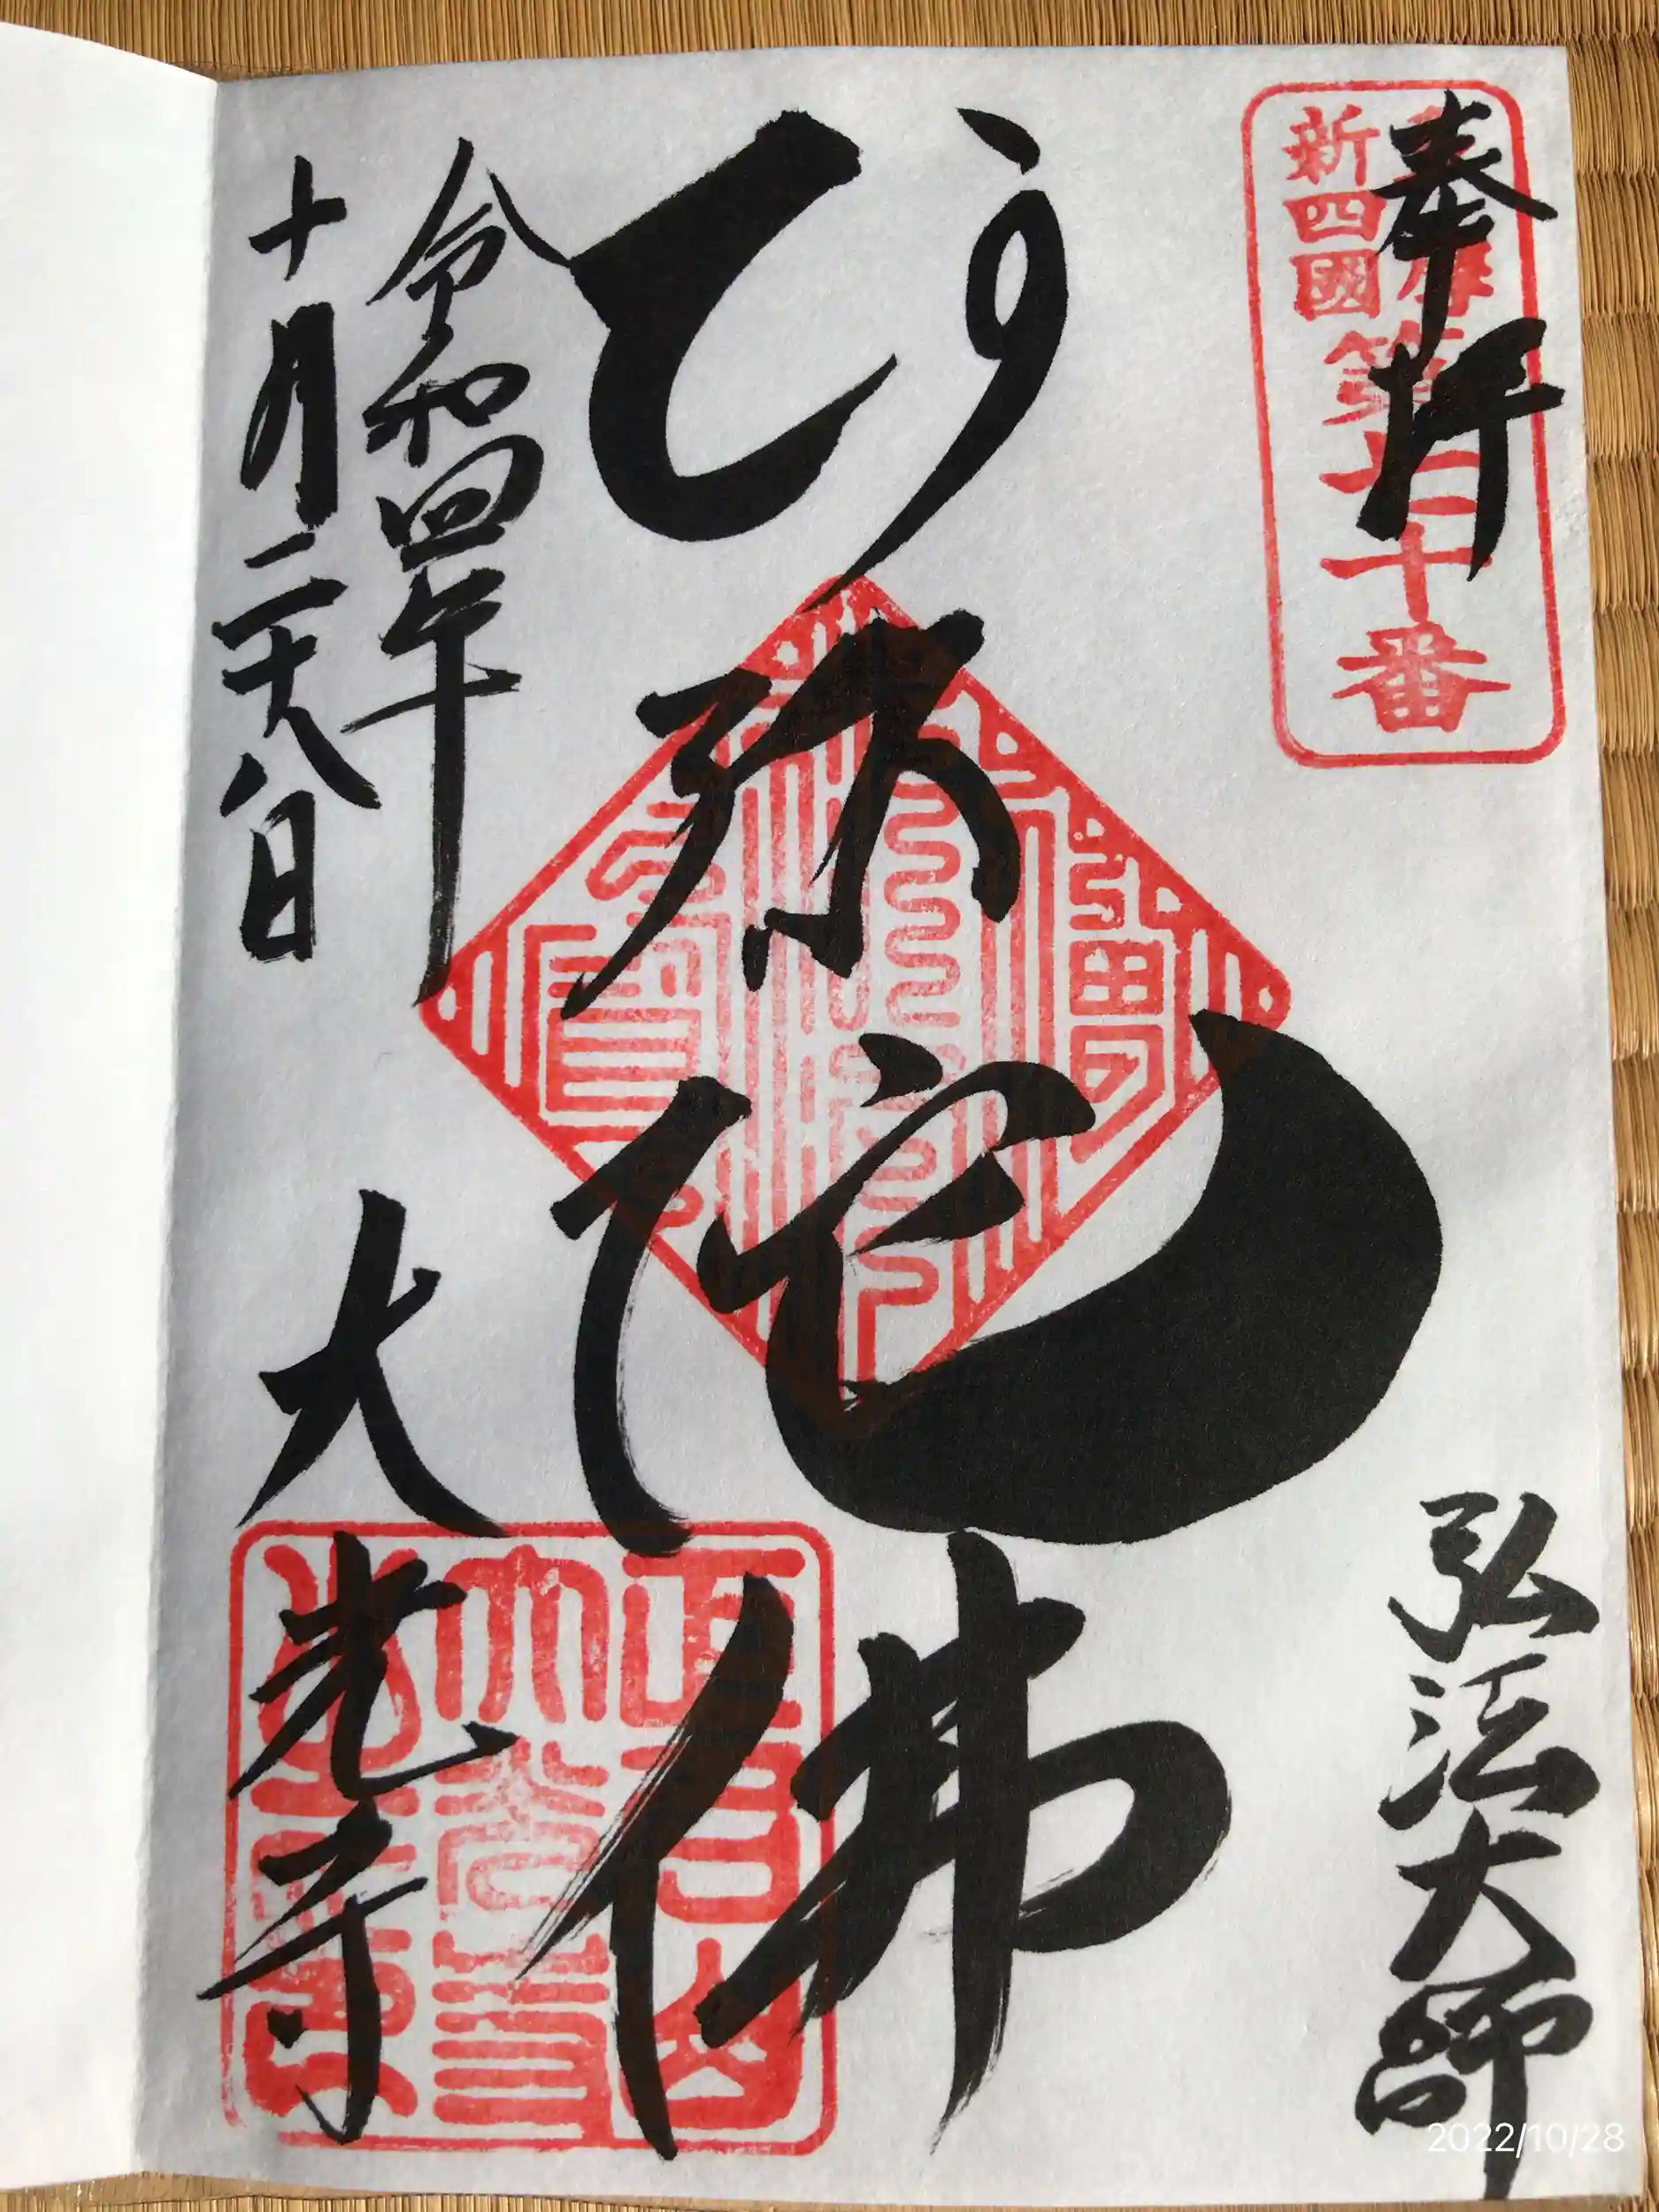 奉拝
新四國
第七十番
弘法大師
阿弥陀佛
令和四年
十月二十八日
大光寺
2022/10/28